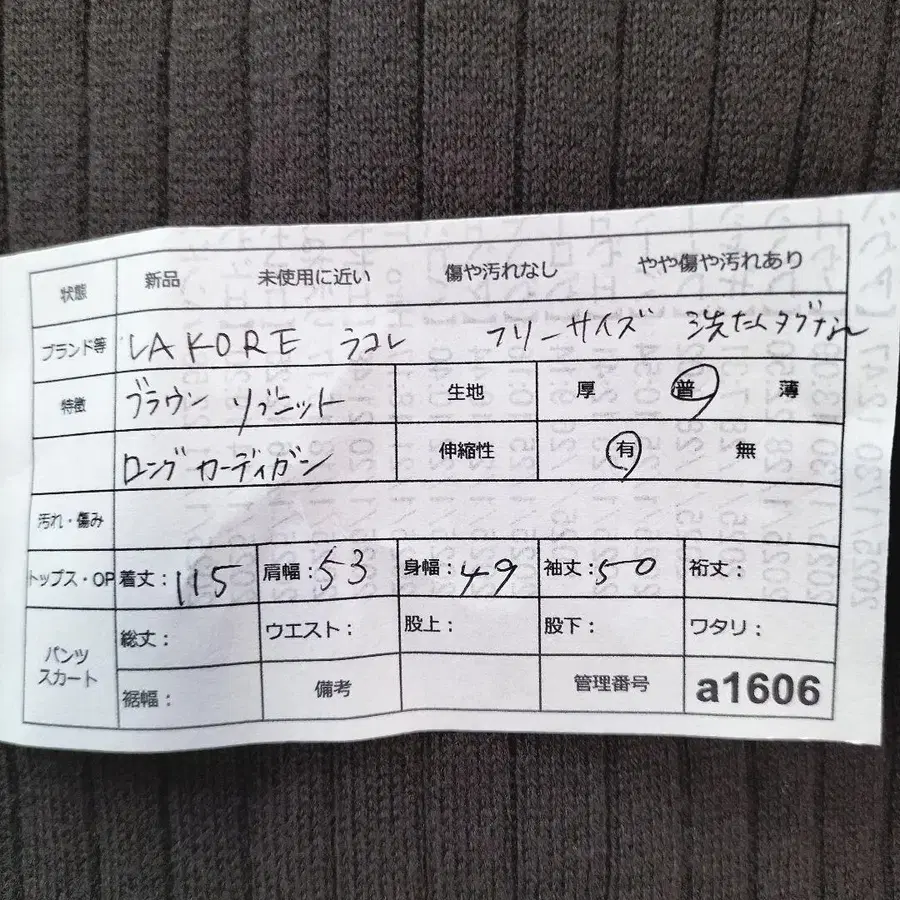 状態 新品 未使用に近い 傷や汚れなし やや傷や汚れあり
ブランド等 LAKORE ラコレ フリーサイズ 洗たくタグなし
特徴 ブラウン リブニット 生地 厚 普 薄
ロング カーディガン 伸縮性 有 無
汚れ・傷み
トップス・OP 着丈：115 肩幅：53 身幅：49 袖丈：50 裄丈：
パンツ スカート 総丈： ウエスト： 股上： 股下： ワタリ：
裾幅： 備考 管理番号 a1606